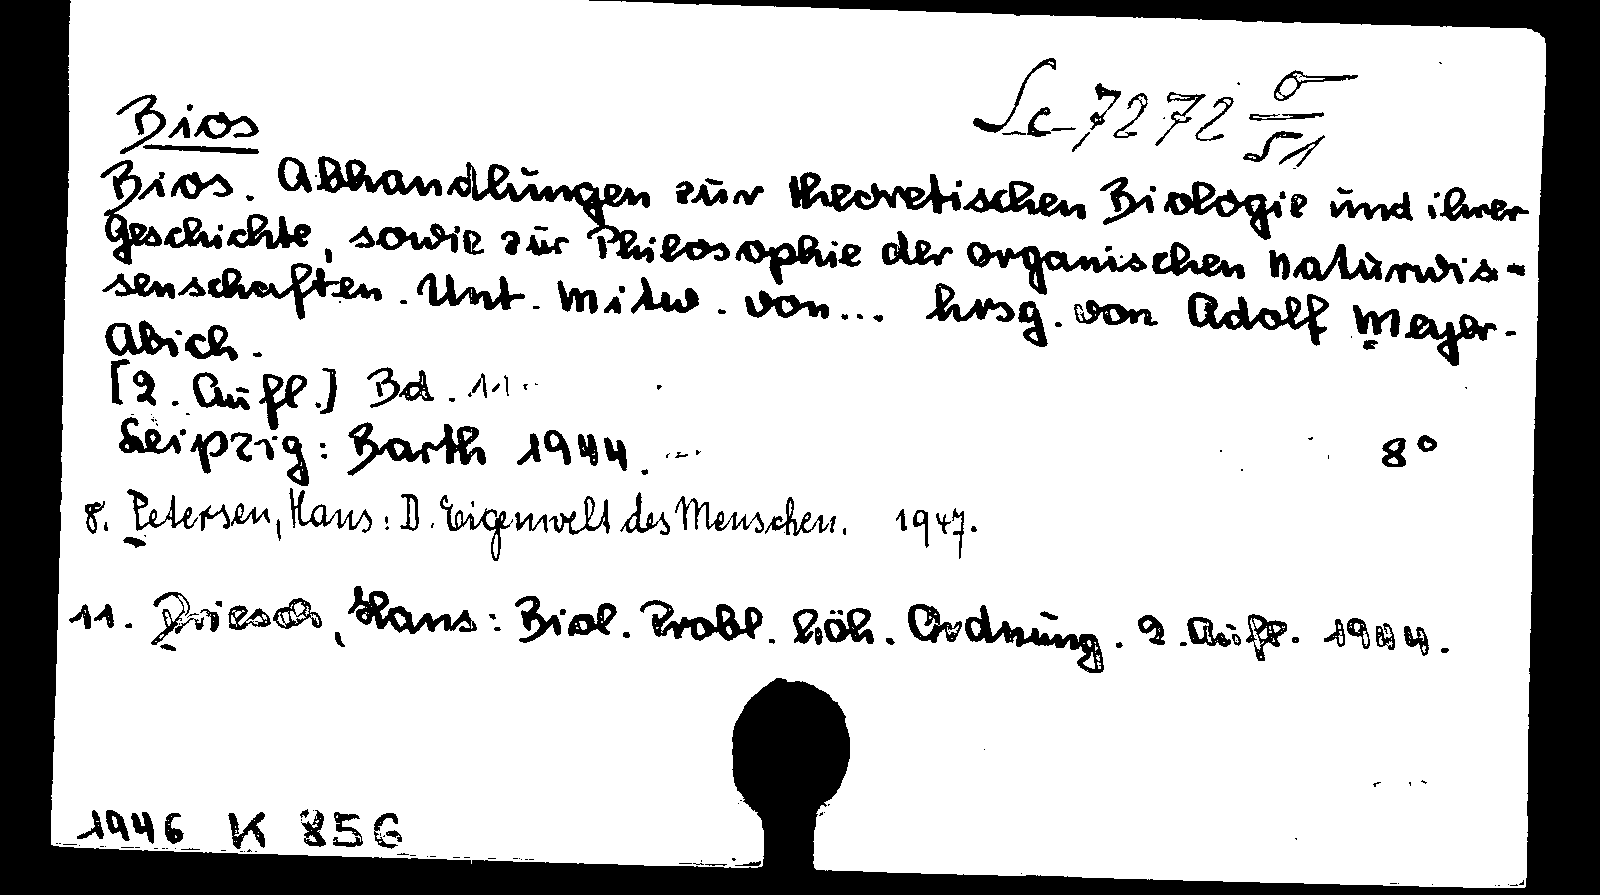 Bios
Sc 7272 σ/51
Bios. Abhandlungen zur theoretischen Biologie und ihrer
Geschichte, sowie zur Philosophie der organischen Naturwis-
senschaften. Unt. Mitw. von... hrsg. von Adolf Meyer-
Abich.
[2. Aufl.] Bd. 11..
Leipzig: Barth 1944. 8°
8. Petersen, Hans: D. Eigenwelt des Menschen. 1947.
11. Driesch, Hans: Biol. Probl. höh. Ordnung. 2. Aufl. 1944.
1946 K 856